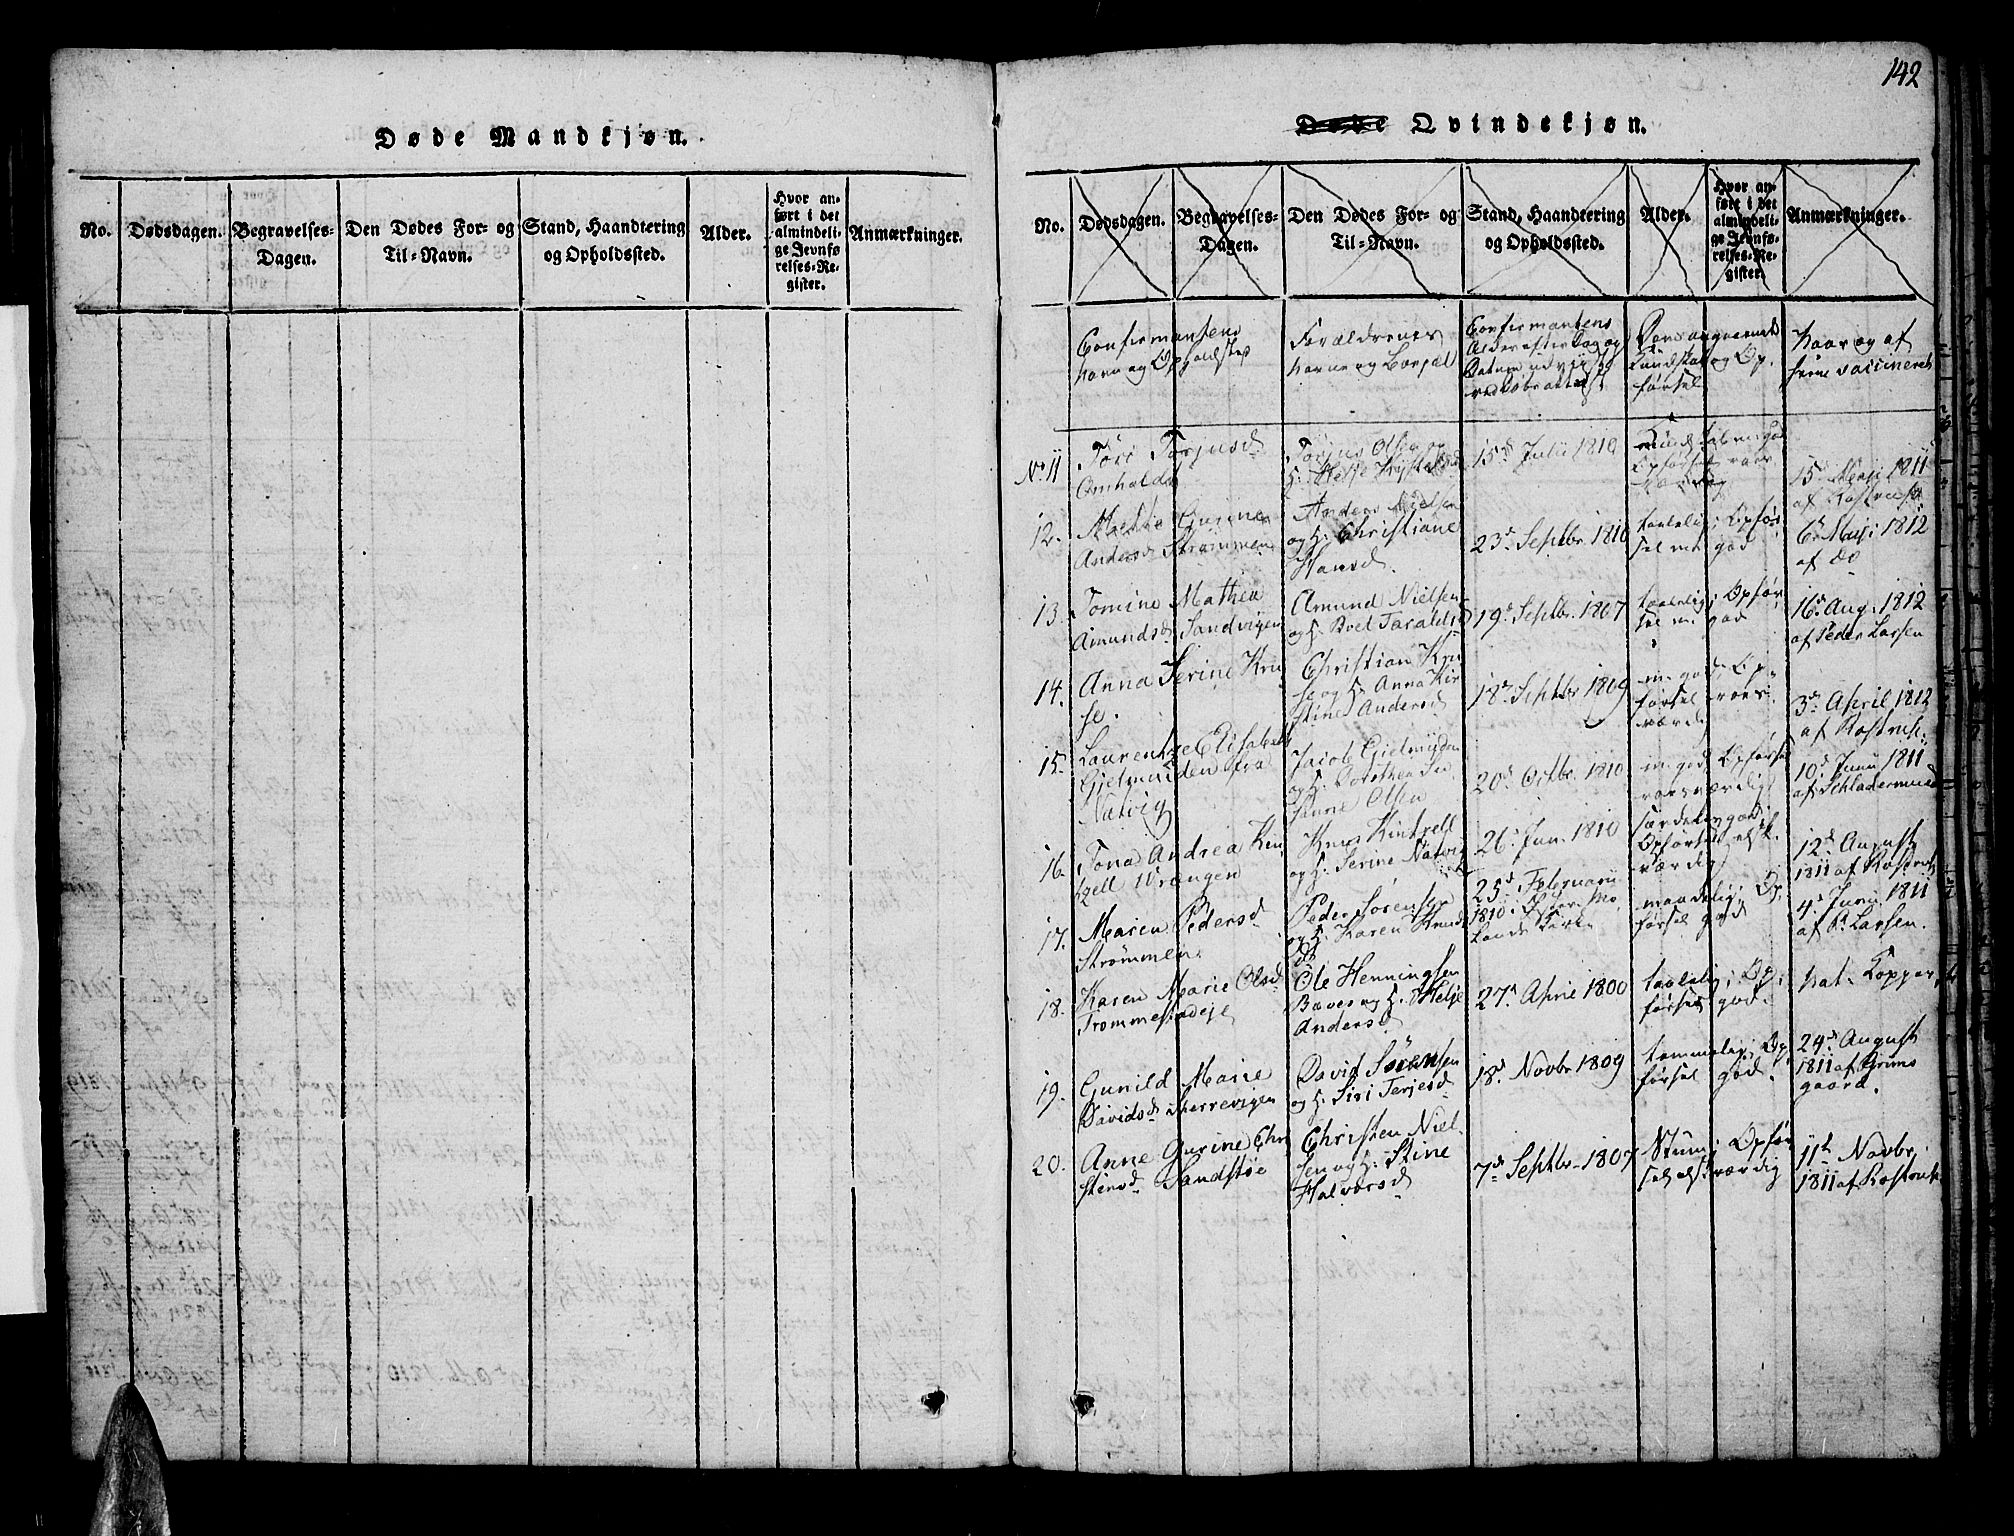 142
Døde Mandkjøn.
No.
Dødsdagen.
Begravelses-
Dagen.
Den Dødes For- og
Til-Navn.
Stand, Haandtering
og Opholdssted.
Alder.
Hvor an-
ført i det
almindeli-
ge Jevnfø
relses-Re-
gister.
Anmærkninger.
Døde Qvindekjøn.
No.
Dødsdagen.
Begravelses-
Dagen.
Den Dødes For- og
Til-Navn.
Stand, Haandtering
og Opholdssted.
Alder.
Hvor an-
ført i det
almindeli-
ge Jevnfø-
relses-Re-
gister.
Anmærkninger.
Confirmantens
Navn og Opholdsted
Forældrenes
Navne og
Confirmantens
Alder efter Dag og
Datum
Kundskab og Op-
førsel
Naar og af
hvem vaccineret
No. 11
Tore Torjusd
Omholdt
Torjus Olsen og
H. Helje
15d Julii 1810
Kundskab m: god
Opførsel roes
værdig
15d Maji 1811
af Rostrup
12.
Mette Gurine
Andersd Strømmen
Anders Nielsen
og H. Christiane
Hansd.
23d Septbr. 1810
taalelig; Opfør-
sel m: god
6d Maji 1812
af do
13.
Tomine Mathea
Amundsd Sandvigen
Amund Nielsen
og H. Taraldsd
19d Septbr. 1807
taalelig; Opfør-
sel m: god
16d Aug. 1812
af Peder Larsen
14.
Anna Serine Kru
se.
Christian Kru
se og H. Anna Kir
stine Andersd
18d Septbr 1809
m: god; Op-
førsel roes-
værd
3d April 1812
af
15.
Elisabeth
Gjelmuiden fra
Natvig
Jacob Gjelmuiden
og H. Dorothea Su
sanne Olsen
20d Octbr. 1810
m: god; Opførsel
roesværdig
10d Junii 1811
af
16.
Tona Andrea Kin
tzell Vrængen
Knus Kintzell
og H. Serine Natvig
26d Jun. 1810
særdeles god
Opførsel elsk-
værdig
12d August
1811 af Rostrup
17.
Maren Pedersd
Strømmen
Peder Sørensen
og H. Karen Knuds
d
25d Februarii
1810 i
Lands Kirke
maadelig; Op-
førsel god
4d Junii 1811
af P. Larsen.
18.
Karen Marie Olsd
Trommestadeje
Ole Henningsen
og H. Helje
Andersd
27d April 1800
taalelig; Op-
førsel god.
nat. Kopper
19.
Gunild Marie
Davidsd
David Sørensen
og H. Siri Terjesd
18d Novbr 1809
temmelig; Op-
førsel god.
24d August
1811 af Grims
gaard.
20.
Anne Gurine Chri
stensd Sandstøe
Christen Niel-
sen og H. Stine
Halvorsd
7d Septbr. 1807
Stum; Opfør
sel elskværdig
11d Novbr.
1811 af Rostrup